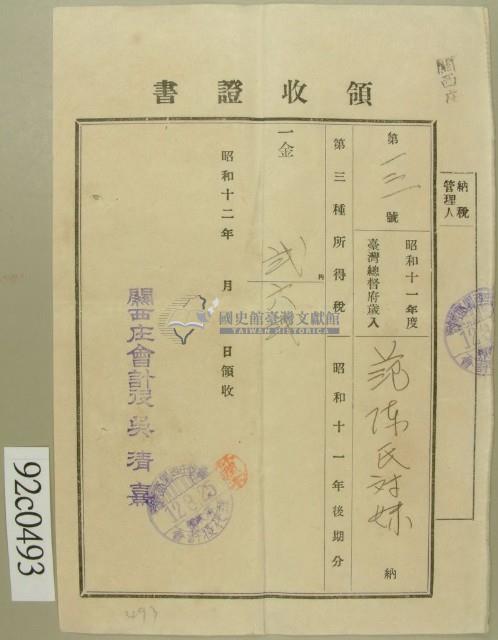 關西庄
領收證書
納稅管理人
第一三號
昭和十一年度
臺灣總督府歲入
范陳氏对妹 納
第三種所得稅 昭和十一年後期分
一金
円
弐六弐
昭和十二年 月 日領收
關西庄會計役 吳清熹
12.8.25
國史館臺灣文獻館
TAIWAN HISTORICA
92c0493
493